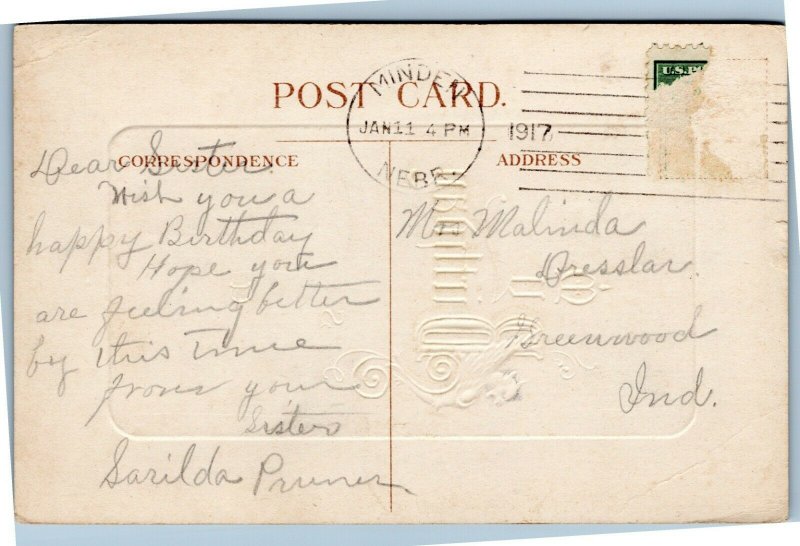 POST CARD.
MINDEN
JAN 11 4 PM
1917
NEBR.
CORRESPONDENCE
ADDRESS
Dear Sister.
Wish you a
happy Birthday
Hope you
are feeling better
by this time
from your
Sister
Sarilda Pruner
Mrs Malinda
Dresslar.
Greenwood
Ind.